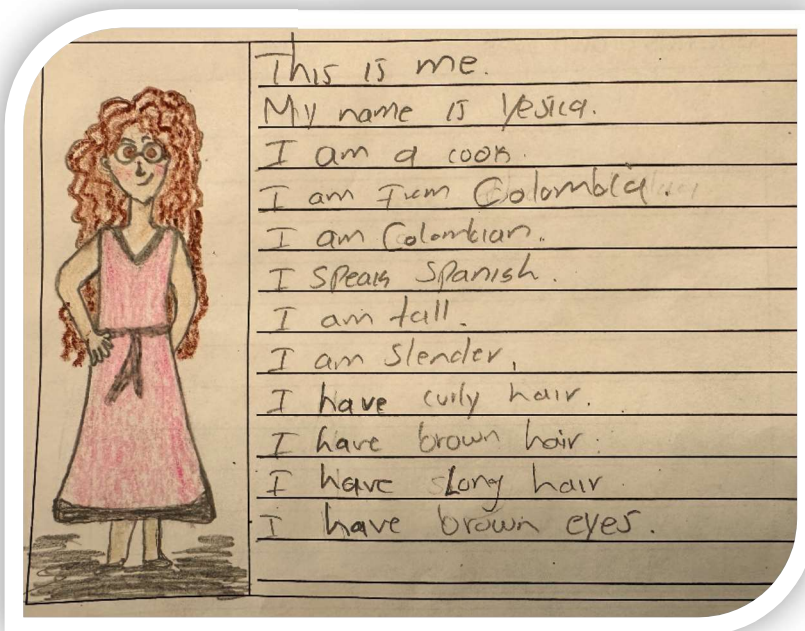 This is me.
My name is Yesica.
I am a cook.
I am from Colombia.
I am Colombian.
I speak Spanish.
I am tall.
I am slender.
I have curly hair.
I have brown hair.
I have long hair
I have brown eyes.